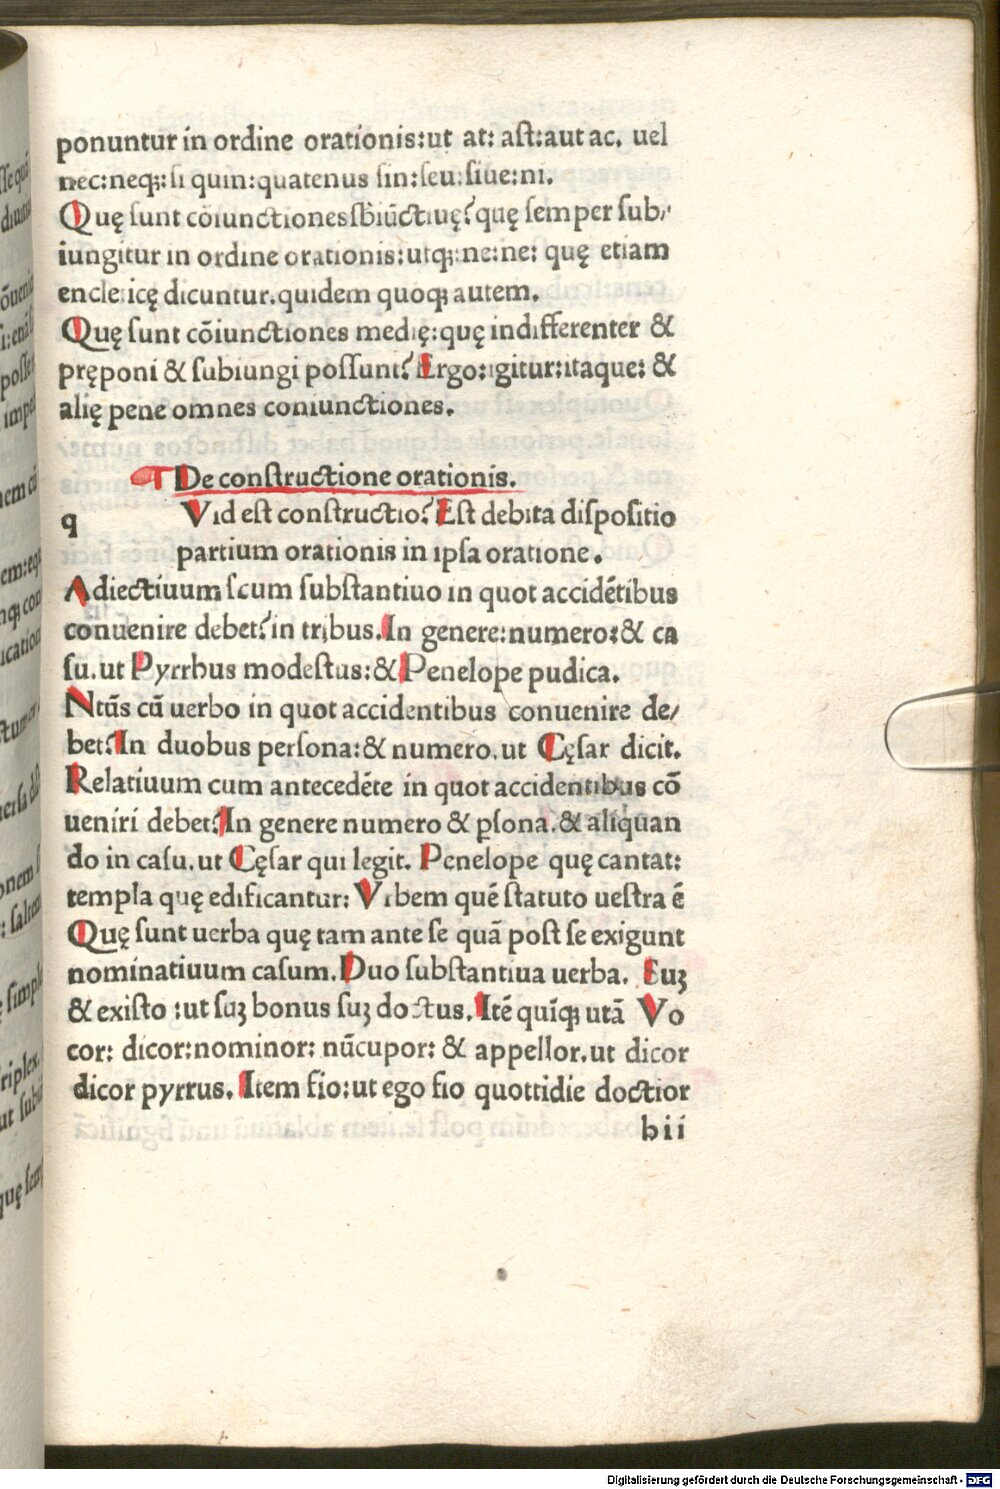 ponuntur in ordine orationis:ut at: ast:aut ac. uel
nec:neqꝫ:si quin:quatenus sin:seu:siue:ni.
Quę sunt cōiunctiones sƀiūctiuę? quę semper sub/
iungitur in ordine orationis:utqꝫ:ne:ne: quę etiam
encleticę dicuntur.quidem quoqꝫ autem.
Quę sunt cōiunctiones medię:quę indifferenter &
pręponi & subiungi possunt? Ergo:igitur:itaque: &
alię pene omnes coniunctiones.
De constructione orationis.
q Vid est constructio? Est debita dispositio
partium orationis in ipsa oratione.
Adiectiuum scum substantiuo in quot accidētibus
conuenire debet? in tribus. In genere:numero:& ca
su.ut Pyrrhus modestus:& Penelope pudica.
Ntūs cū uerbo in quot accidentibus conuenire de/
bet? In duobus persona:& numero.ut Cęsar dicit.
Relatiuum cum antecedēte in quot accidentibus cō
ueniri debet? In genere numero & ꝑsona.& aliquan
do in casu.ut Cęsar qui legit. Penelope quę cantat:
templa quę edificantur: Vrbem quē statuto uestra ē
Quę sunt uerba quę tam ante se quā post se exigunt
nominatiuum casum. Duo substantiua uerba. Suꝫ
& existo :ut suꝫ bonus suꝫ doctus. Itē quīqꝫ utā Vo
cor: dicor:nominor: nūcupor: & appellor.ut dicor
dicor pyrrus. Item fio:ut ego fio quottidie doctior
bii
Digitalisierung gefördert durch die Deutsche Forschungsgemeinschaft - DFG